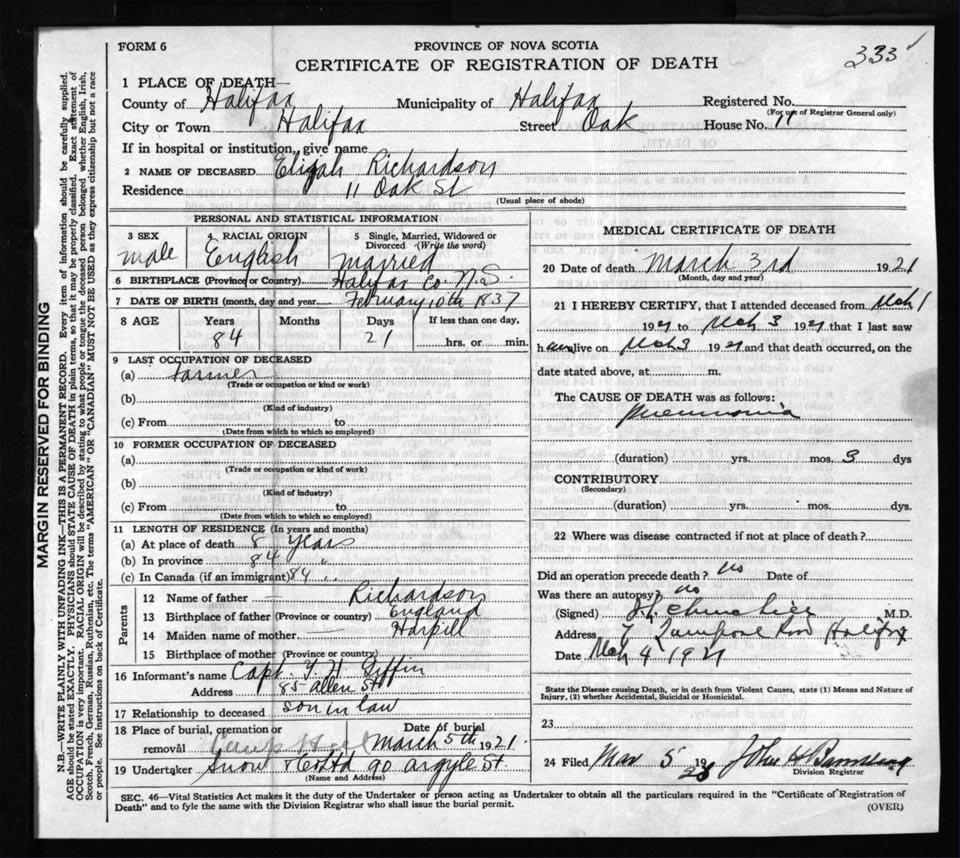 FORM 6
PROVINCE OF NOVA SCOTIA
333
CERTIFICATE OF REGISTRATION OF DEATH
1 PLACE OF DEATH—
County of Halifax Municipality of Halifax Registered No.
(For use of Registrar General only)
City or Town Halifax Street Oak House No. 11
If in hospital or institution, give name
2 NAME OF DECEASED Elijah Richardson
Residence 11 Oak St
(Usual place of abode)
PERSONAL AND STATISTICAL INFORMATION
3 SEX male
4 RACIAL ORIGIN English
5 Single, Married, Widowed or Divorced (Write the word) married
6 BIRTHPLACE (Province or Country) Halifax Co. N.S
7 DATE OF BIRTH (month, day and year) February 10th 1837
8 AGE Years 84 Months Days 21 If less than one day, hrs. or min.
9 LAST OCCUPATION OF DECEASED
(a) Farmer
(Trade or occupation or kind or work)
(b)
(Kind of industry)
(c) From to
(Date from which to which so employed)
10 FORMER OCCUPATION OF DECEASED
(a)
(Trade or occupation or kind or work)
(b)
(Kind of industry)
(c) From to
(Date from which to which so employed)
11 LENGTH OF RESIDENCE (In years and months)
(a) At place of death 8 years
(b) In province 84 "
(c) In Canada (if an immigrant) 84 "
Parents
12 Name of father — Richardson
13 Birthplace of father (Province or country) England
14 Maiden name of mother — Harpill
15 Birthplace of mother (Province or country)
16 Informant's name Capt Y. H. Giffin
Address 85 Allen St
17 Relationship to deceased son in law
18 Place of burial, cremation or removal Camp Hill Date of burial March 5th 1921
19 Undertaker Snow & Co Ltd 90 Argyle St.
(Name and Address)
MEDICAL CERTIFICATE OF DEATH
20 Date of death March 3rd 1921
(Month, day and year)
21 I HEREBY CERTIFY, that I attended deceased from Mch 1
1921 to Mch 3 1921 that I last saw
h alive on Mch 3 1921 and that death occurred, on the
date stated above, at m.
The CAUSE OF DEATH was as follows:
Pneumonia
(duration) yrs. mos. 3 dys
CONTRIBUTORY
(Secondary)
(duration) yrs. mos. dys.
22 Where was disease contracted if not at place of death?
Did an operation precede death? no Date of
Was there an autopsy? no
(Signed) M.D.
Address 7 Halifax
Date Mch 4 1921
State the Disease causing Death, or in death from Violent Causes, state (1) Means and Nature of
Injury, (2) whether Accidental, Suicidal or Homicidal.
23
24 Filed Mar 5 19 John H
Division Registrar
SEC. 46—Vital Statistics Act makes it the duty of the Undertaker or person acting as Undertaker to obtain all the particulars required in the "Certificate of Registration of
Death" and to fyle the same with the Division Registrar who shall issue the burial permit.
(OVER)
MARGIN RESERVED FOR BINDING
N.B.—WRITE PLAINLY WITH UNFADING INK—THIS IS A PERMANENT RECORD. Every item of information should be carefully supplied.
AGE should be stated EXACTLY. PHYSICIANS should STATE CAUSE OF DEATH in plain terms, so that it may be properly classified. Exact statement of
OCCUPATION is very important. RACIAL ORIGIN will be described by stating to what people or tongue the deceased person belonged, whether English, Irish,
Scotch, French, German, Russian, Ruthenian, etc. The terms "AMERICAN" OR "CANADIAN" MUST NOT BE USED as they express citizenship but not a race
or people. See instructions on back of Certificate.